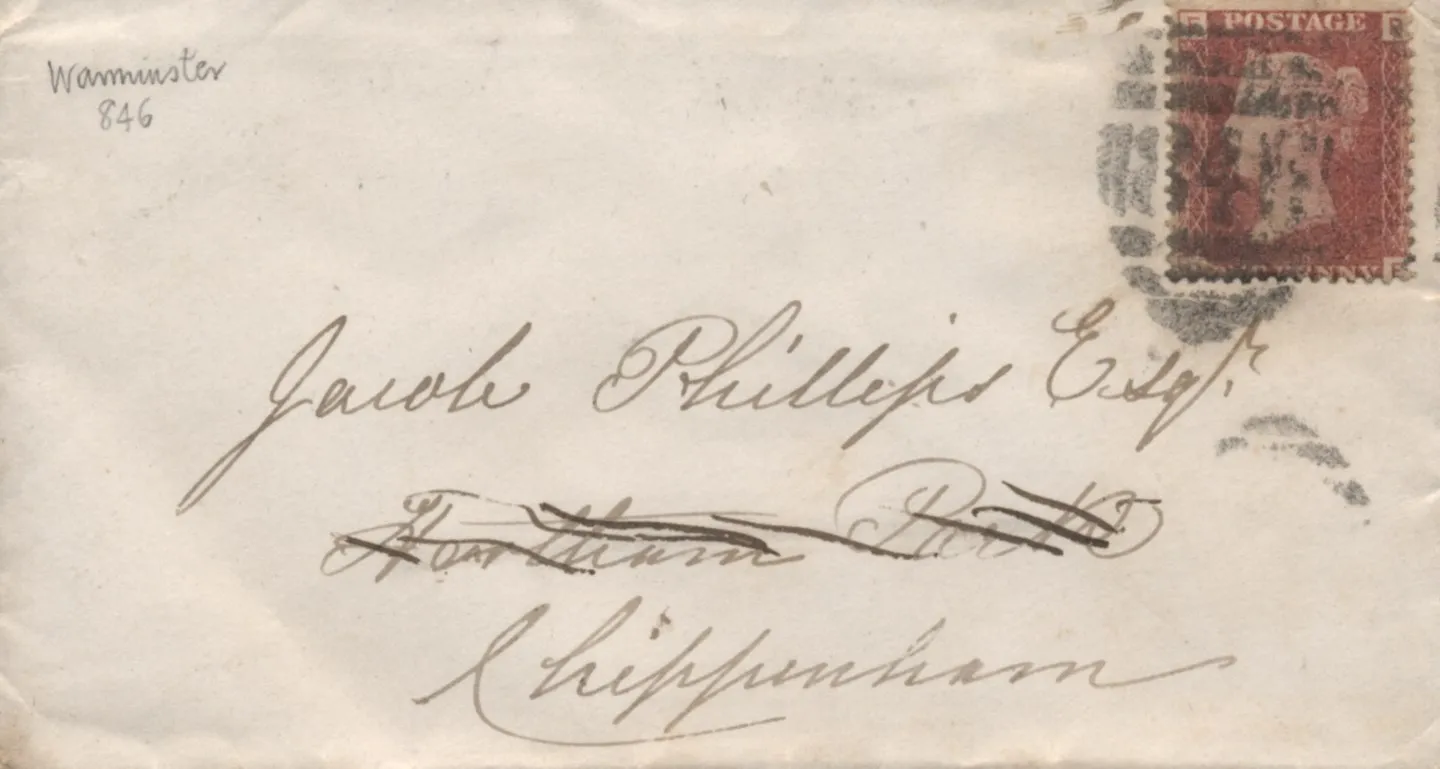 Warminster
846
POSTAGE
Jacob Phillips Esqr.
Hartham Park
Chippenham